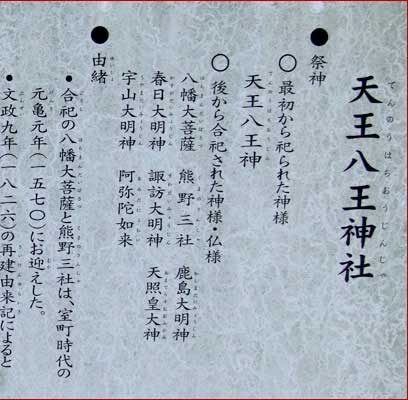 天王八王神社
てんのうはちおうじんじゃ
●祭神
○最初から祀られた神様
天王八王神
○後から合祀された神様・仏様
八幡大菩薩 熊野三社 鹿島大明神
春日大明神 諏訪大明神 天照皇大神
宇山大明神 阿弥陀如来
●由緒
・合祀の八幡大菩薩と熊野三社は、室町時代の
元亀元年(一五七〇)にお迎えした。
・文政九年(一八二六)の再建由来記によると